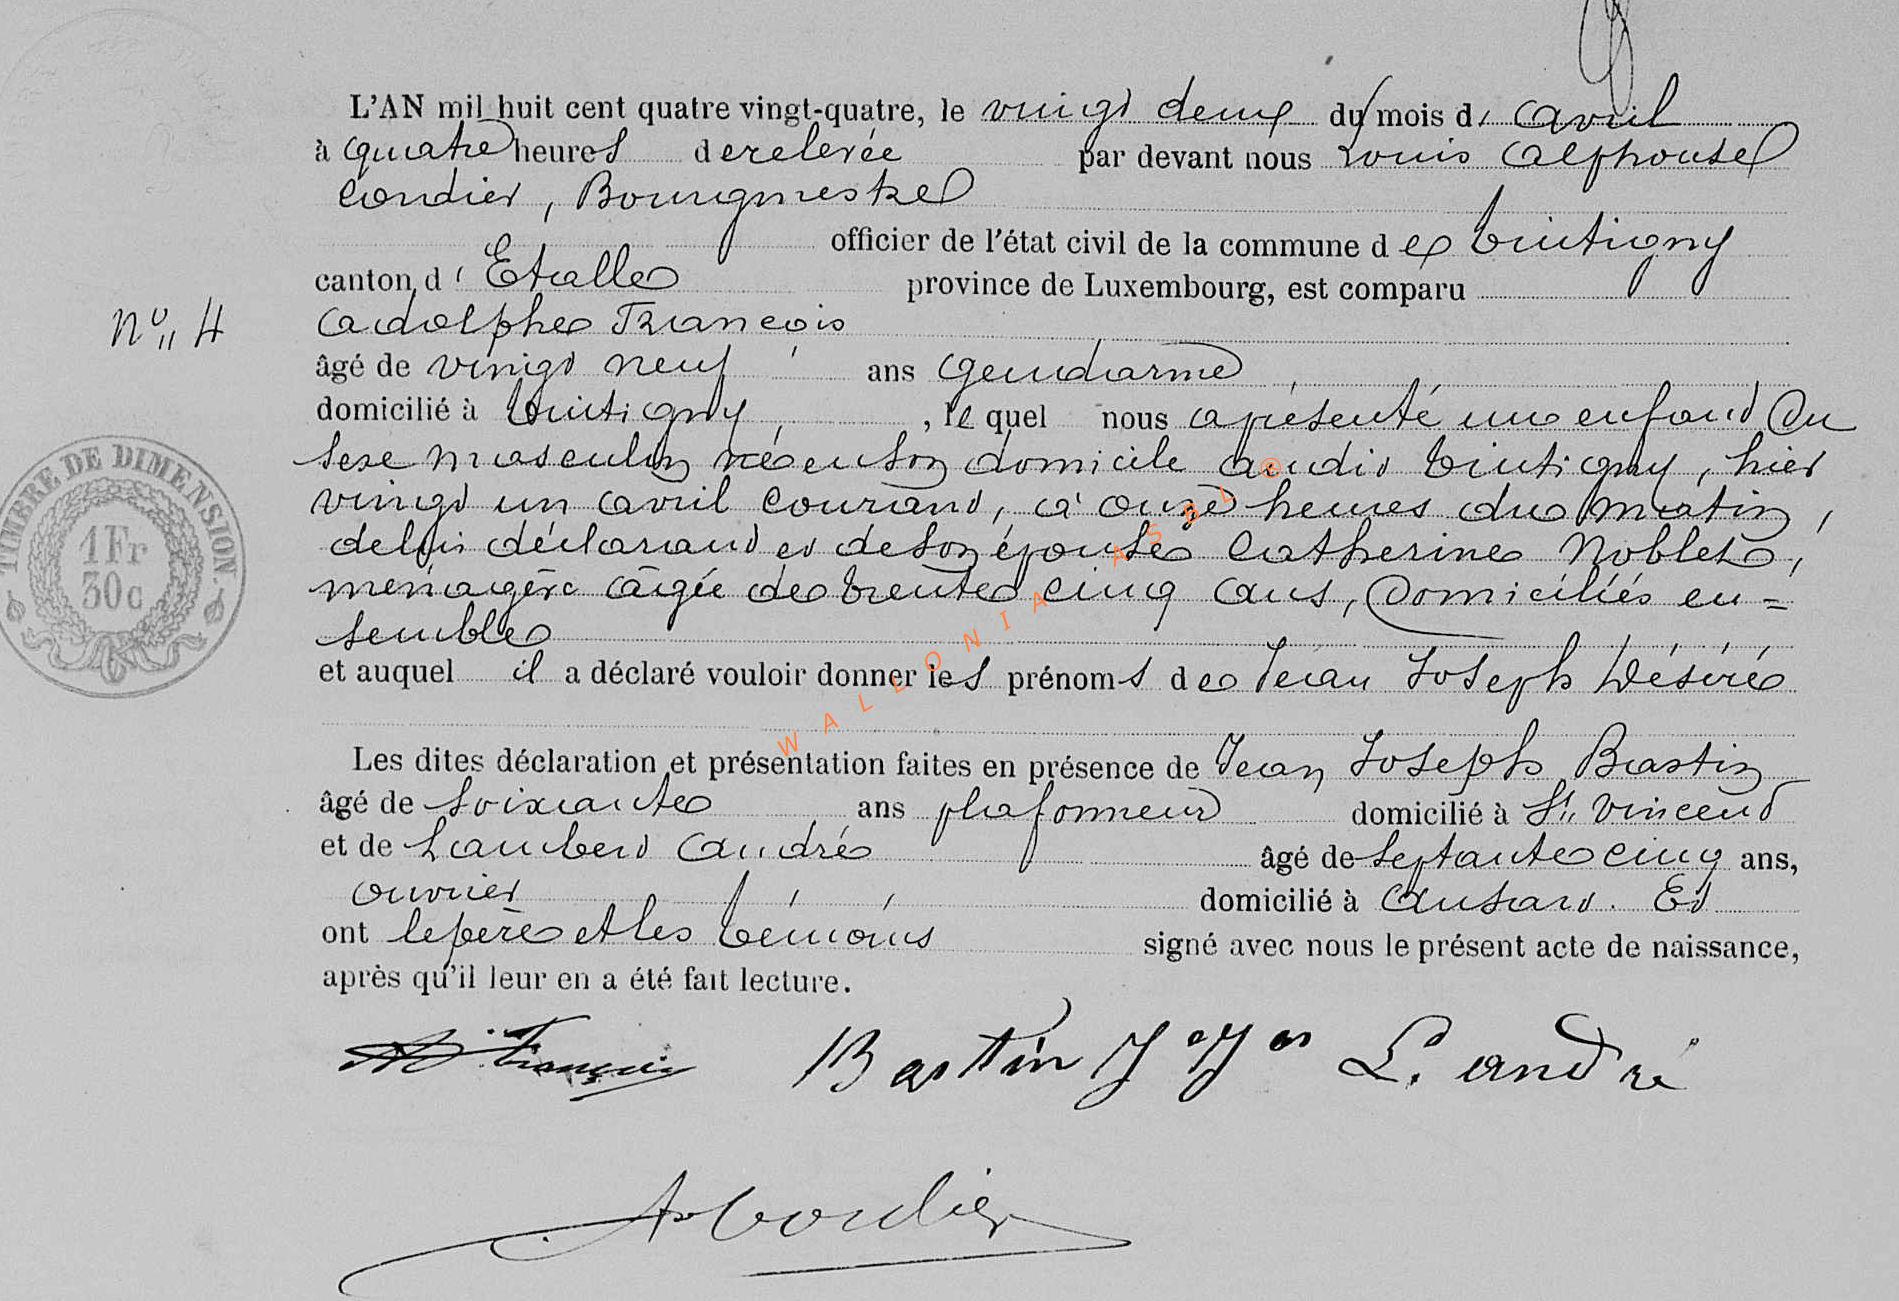 L'AN mil huit cent quatre vingt-quatre, le vingt deux du mois d'avril
à quatre heures de relevée par devant nous Louis Alphonse
Cordier, Bourgmestre
officier de l'état civil de la commune de Tintigny
canton d'Etalle province de Luxembourg, est comparu
N° 4
Adolphe François
âgé de vingt neuf ans Gendarme
domicilié à Tintigny, le quel nous a présenté un enfant du
sexe masculin né en son domicile audit Tintigny, hier
vingt un avril courant, à onze heures du matin,
de lui déclarant et de son épouse Catherine Noblet,
ménagère âgée de trente cinq ans, domiciliés en=
semble
et auquel il a déclaré vouloir donner les prénoms de Jean Joseph Désiré
Les dites déclaration et présentation faites en présence de Jean Joseph Bastin
âgé de soixante ans plafonneur domicilié à St. Vincent
et de Lambert André âgé de septante cinq ans,
ouvrier domicilié à Ansart. Et
ont le père et les témoins signé avec nous le présent acte de naissance,
après qu'il leur en a été fait lecture.
TIMBRE DE DIMENSION.
1 Fr
30 c
WALLONIA ASBL ©
Ad. François Bastin J L. andré
A Cordier